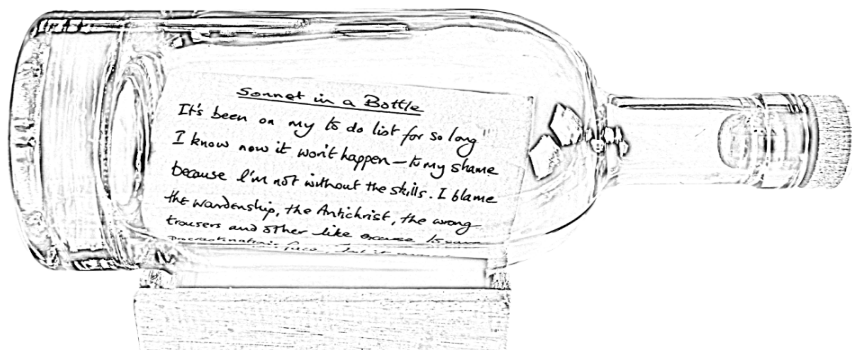 Sonnet in a Bottle
It's been on my to do list for so long
I know now it won't happen – to my shame
because I'm not without the skills. I blame
the wardenship, the Antichrist, the wrong
trousers and other like excuse to
procrastination's face